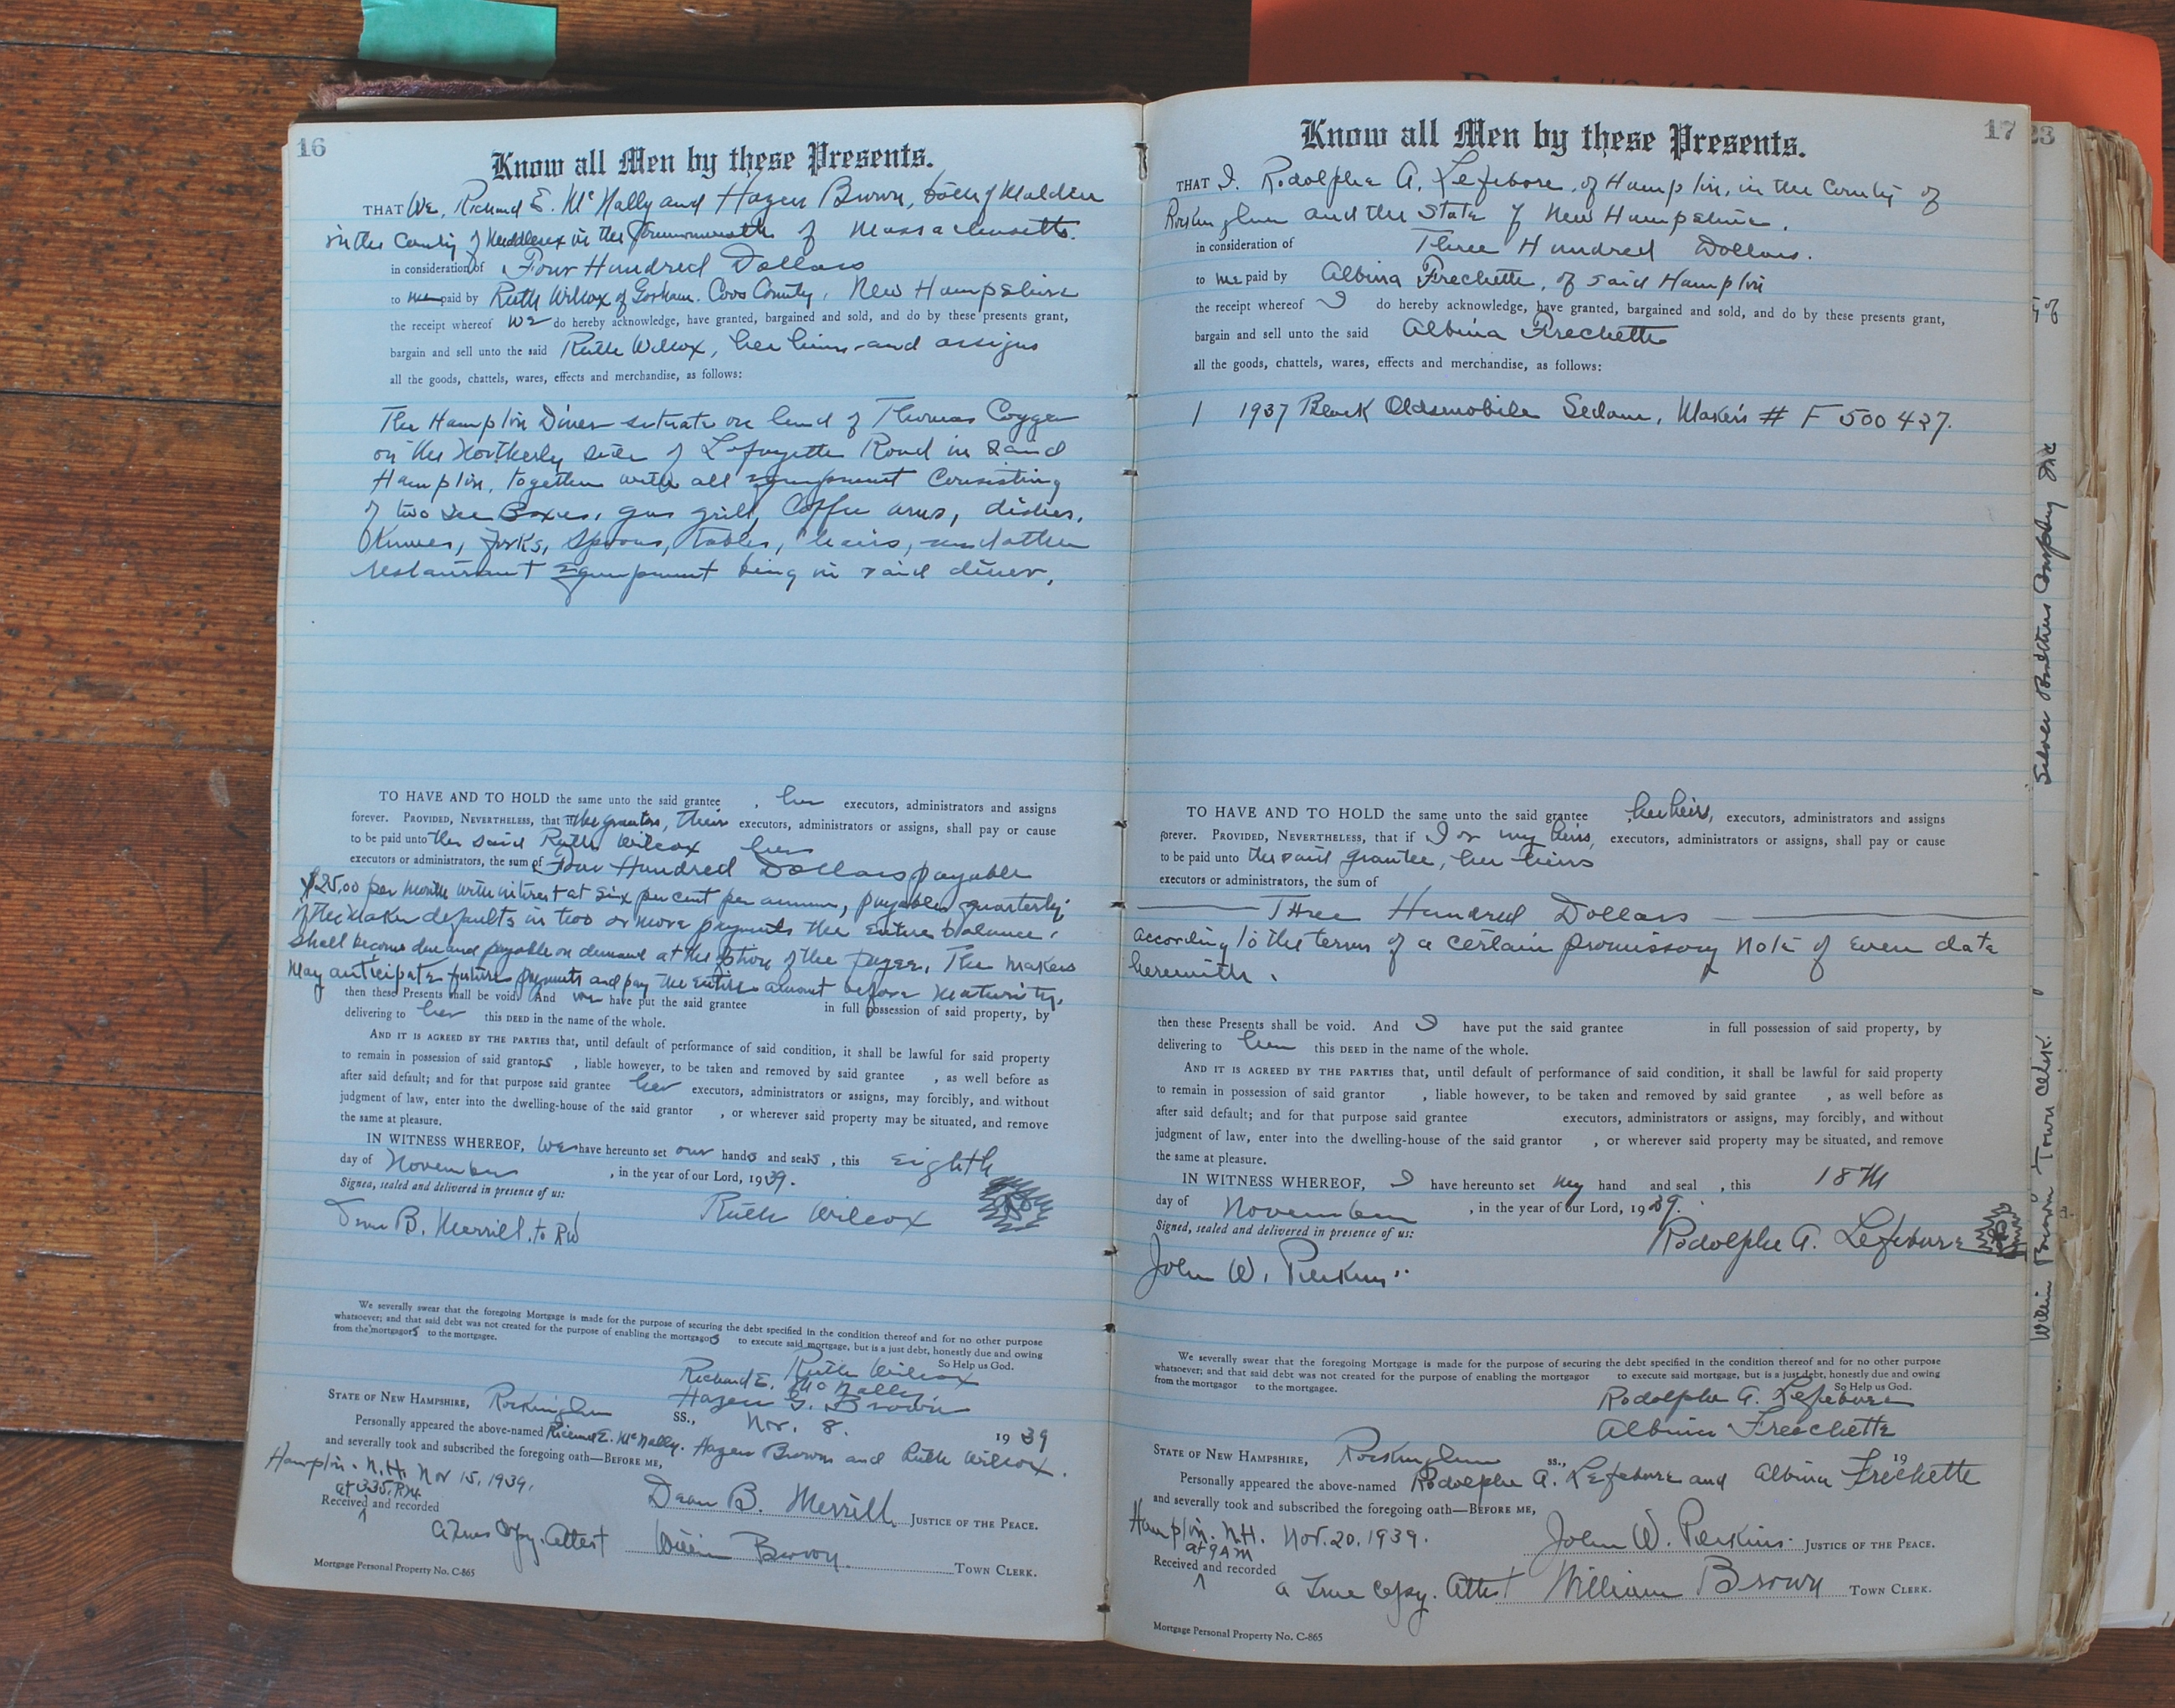 16
Know all Men by these Presents.
THAT We, Richard E. McNally and Hazen Brown, both of Malden
in the County of Middlesex in the Commonwealth of Massachusetts.
in consideration of Four Hundred Dollars
to me paid by Ruth Wilcox of Gorham. Coos County, New Hampshire
the receipt whereof we do hereby acknowledge, have granted, bargained and sold, and do by these presents grant,
bargain and sell unto the said Ruth Wilcox, her heirs and assigns
all the goods, chattels, wares, effects and merchandise, as follows:
The Hampton Diner situate on land of Thomas Coggen
on the Northerly side of Lafayette Road in said
Hampton, together with all equipment consisting
of two Ice Boxes, gas grill, Coffee urns, dishes,
Knives, forks, spoons, tables, chairs, and other
restaurant Equipment being in said diner,
TO HAVE AND TO HOLD the same unto the said grantee , her executors, administrators and assigns
forever. PROVIDED, NEVERTHELESS, that if the grantors, their executors, administrators or assigns, shall pay or cause
to be paid unto the said Ruth Wilcox her
executors or administrators, the sum of Four Hundred Dollars payable
$25.00 per month with interest at six per cent per annum, payable quarterly,
if the Maker defaults in two or more payments the entire balance
shall become due and payable on demand at the option of the payee. The makers
May anticipate future payments and pay the entire amount before maturity.
then these Presents shall be void. And we have put the said grantee in full possession of said property, by
delivering to her this DEED in the name of the whole.
AND IT IS AGREED BY THE PARTIES that, until default of performance of said condition, it shall be lawful for said property
to remain in possession of said grantors , liable however, to be taken and removed by said grantee , as well before as
after said default; and for that purpose said grantee her executors, administrators or assigns, may forcibly, and without
judgment of law, enter into the dwelling-house of the said grantor , or wherever said property may be situated, and remove
the same at pleasure.
IN WITNESS WHEREOF, We have hereunto set our hands and seals , this Eighth
day of November , in the year of our Lord, 1939.
Signed, sealed and delivered in presence of us:
Dean B. Merrill. to RW Ruth Wilcox
We severally swear that the foregoing Mortgage is made for the purpose of securing the debt specified in the condition thereof and for no other purpose
whatsoever; and that said debt was not created for the purpose of enabling the mortgagors to execute said mortgage, but is a just debt, honestly due and owing
from the mortgagors to the mortgagee. So Help us God.
Ruth Wilcox
Richard E. McNally,
Hazen G. Brown
STATE OF NEW HAMPSHIRE, Rockingham SS., Nov. 8. 1939
Personally appeared the above-named Richard E. McNally. Hazen Brown and Ruth Wilcox.
and severally took and subscribed the foregoing oath—BEFORE ME,
Hampton. N.H. Nov 15, 1939,
at 3 35. P.M.
Received and recorded
Dean B. Merrill JUSTICE OF THE PEACE.
a True Copy. Attest William Brown. TOWN CLERK.
Mortgage Personal Property No. C-865
17
Know all Men by these Presents.
THAT I. Rodolphe A. Lefebvre, of Hampton, in the County of
Rockingham and the State of New Hampshire.
in consideration of Three Hundred Dollars.
to me paid by Albina Frechette, of said Hampton
the receipt whereof I do hereby acknowledge, have granted, bargained and sold, and do by these presents grant,
bargain and sell unto the said Albina Frechette
all the goods, chattels, wares, effects and merchandise, as follows:
1 1937 Black Oldsmobile Sedan, Maker's # F 500 427.
TO HAVE AND TO HOLD the same unto the said grantee her heirs, executors, administrators and assigns
forever. PROVIDED, NEVERTHELESS, that if I or my heirs, executors, administrators or assigns, shall pay or cause
to be paid unto the said grantee, her heirs
executors or administrators, the sum of
Three Hundred Dollars
according to the terms of a certain promissory note of even date
herewith.
then these Presents shall be void. And I have put the said grantee in full possession of said property, by
delivering to her this DEED in the name of the whole.
AND IT IS AGREED BY THE PARTIES that, until default of performance of said condition, it shall be lawful for said property
to remain in possession of said grantor , liable however, to be taken and removed by said grantee , as well before as
after said default; and for that purpose said grantee executors, administrators or assigns, may forcibly, and without
judgment of law, enter into the dwelling-house of the said grantor , or wherever said property may be situated, and remove
the same at pleasure.
IN WITNESS WHEREOF, I have hereunto set my hand and seal , this 18th
day of November , in the year of our Lord, 1939.
Signed, sealed and delivered in presence of us:
Rodolphe A. Lefebvre
John W. Perkins
We severally swear that the foregoing Mortgage is made for the purpose of securing the debt specified in the condition thereof and for no other purpose
whatsoever; and that said debt was not created for the purpose of enabling the mortgagor to execute said mortgage, but is a just debt, honestly due and owing
from the mortgagor to the mortgagee. So Help us God.
Rodolphe A. Lefebvre
Albina Freechette
STATE OF NEW HAMPSHIRE, Rockingham ss., 19
Personally appeared the above-named Rodolphe A. Lefebvre and Albina Frechette
and severally took and subscribed the foregoing oath—BEFORE ME,
Hampton. N.H. Nov. 20. 1939.
at 9 AM
Received and recorded
John W. Perkins JUSTICE OF THE PEACE.
a True Copy. Attest William Brown TOWN CLERK.
Mortgage Personal Property No. C-865
23
William Brown Town Clerk.
Silver Brothers Company Inc